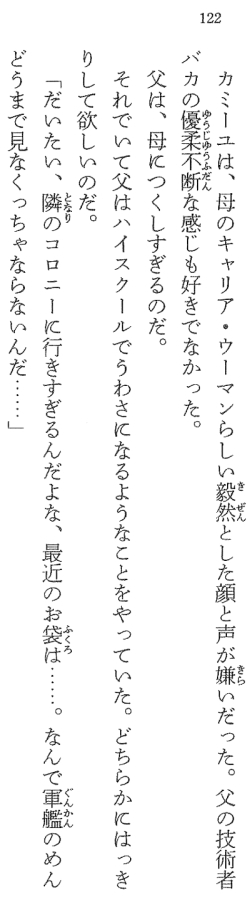 122
カミーユは、母のキャリア・ウーマンらしい毅然とした顔と声が嫌いだった。父の技術者
バカの優柔不断な感じも好きでなかった。
父は、母につくしすぎるのだ。
それでいて父はハイスクールでうわさになるようなことをやっていた。どちらかにはっき
りして欲しいのだ。
「だいたい、隣のコロニーに行きすぎるんだよな、最近のお袋は……。なんで軍艦のめん
どうまで見なくっちゃならないんだ……」